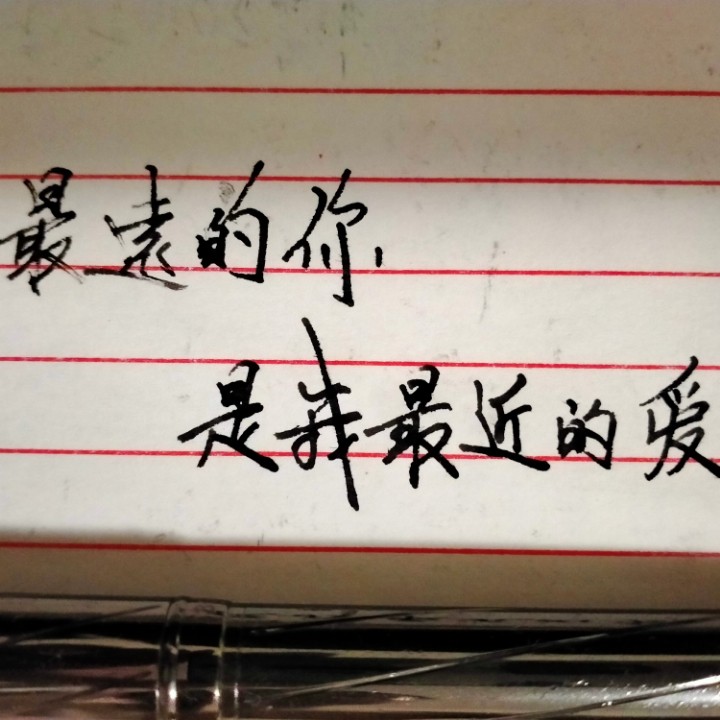 最远的你
是我最近的爱